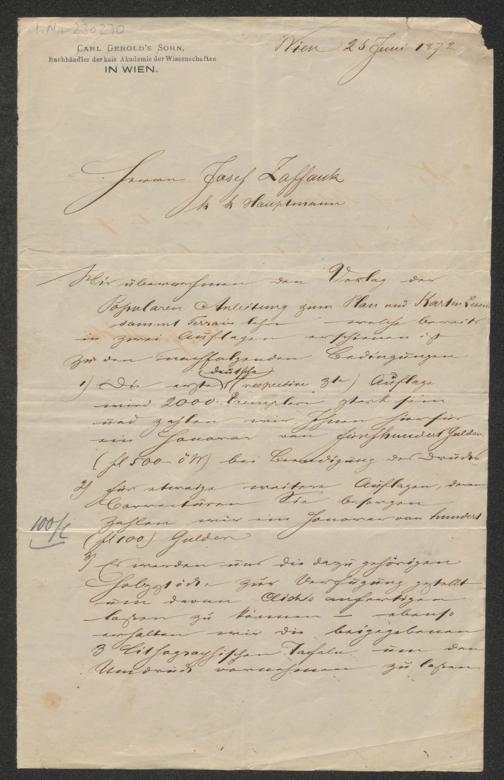 I.N. 230270
CARL GEROLD'S SOHN,
Buchhändler der kais Akademie der Wissenschaften
IN WIEN.
Wien 25 Juni 1872
Herrn Josef Zaffauk
k k Hauptmann
Wir übernehmen den Verlag der
Populären Anleitung zum Plan und Karten Lesen
sammt Terrain lehre – welche bereits
in zwei Auflagen erschienen ist
zu den nachfolgenden Bedingungen
1) Die erste deutsche (respective 3te) Auflage
wird 2000 Exemplare stark sein
und zahlen wir Ihnen hierfür
ein Honorar von fünfhundert Gulden
(fl 500 ö W) bei Beendigung des Drucks
2) für etwaige weitere Auflagen, deren
Correcturen Sie besorgen
zahlen wir ein Honorar von hundert
(fl 100) Gulden
3) Es werden uns die dazu gehörigen
Holzstöcke zur Verfügung gestellt
um davon Clichés anfertigen
lassen zu können – ebenso
erhalten wir die beigegebenen
3 lithographischen Tafeln um den
Umdruck vornehmen zu lassen